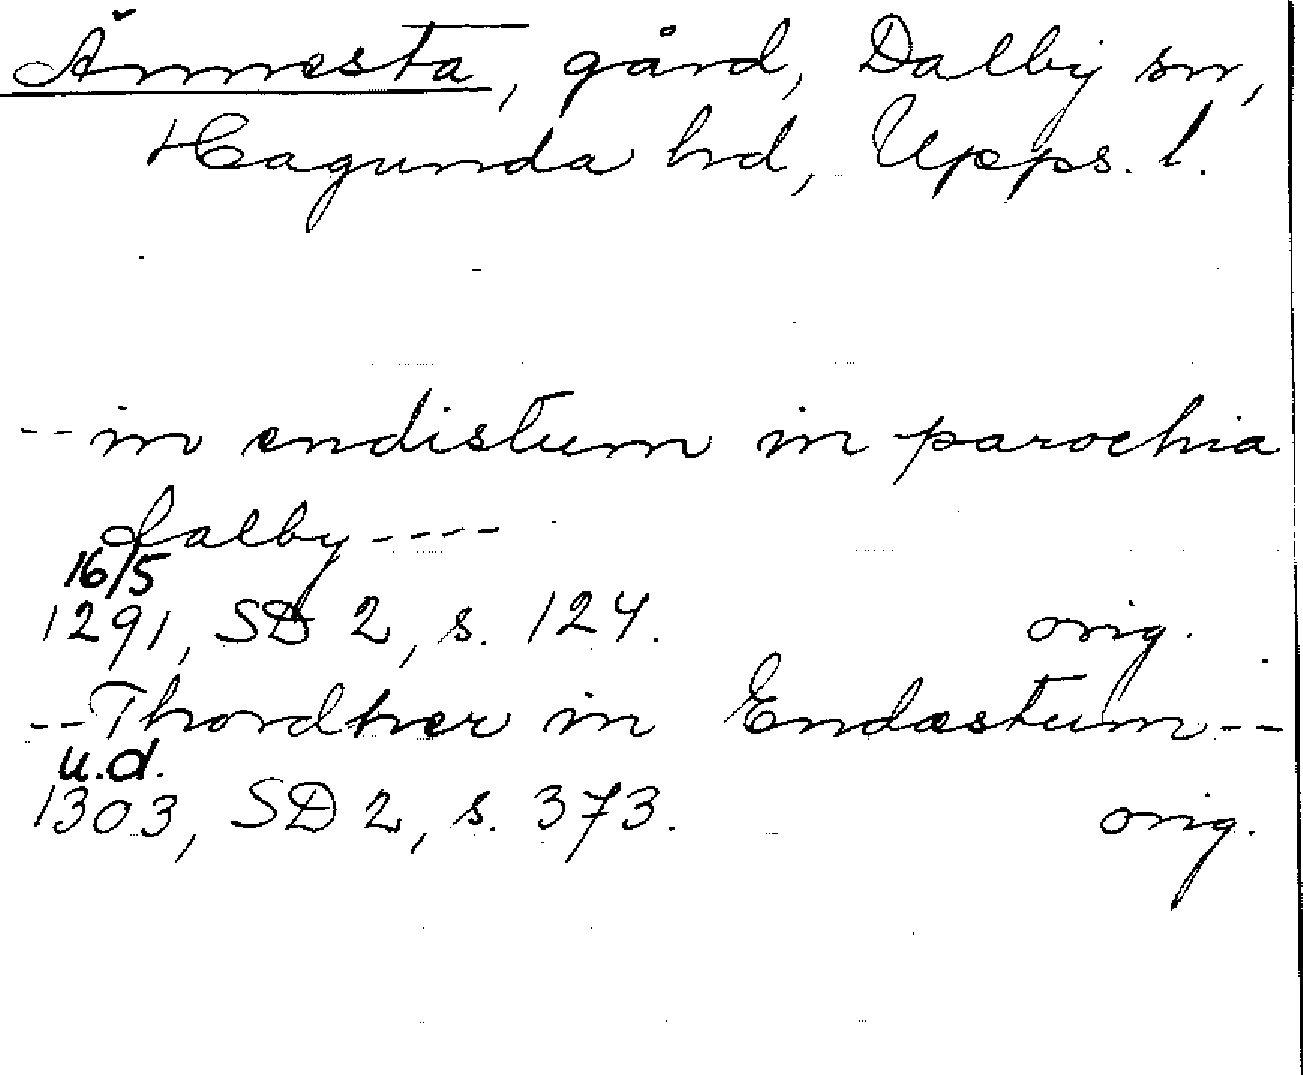 Ännesta, gård, Dalby sn,
Hagunda hd, Upps. l.
-- in endistum in parochia
dalby ----
16/5
1291, SD 2, s. 124. orig.
-- Thordher in Endæstum --
u.d.
1303, SD 2, s. 373. orig.